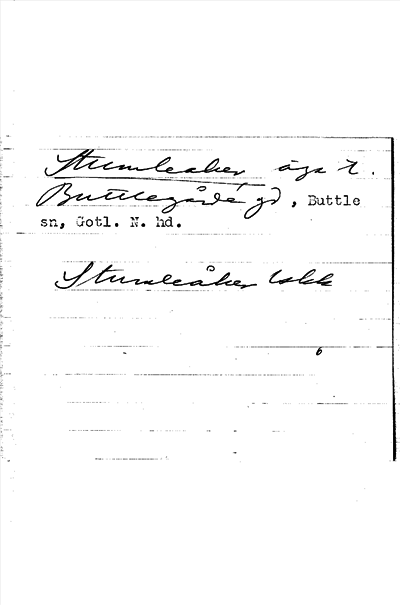 Stumleåker, äga t.
Buttlegårde gd, Buttle
sn, Gotl. N. hd.
Stumleåker lokk
6